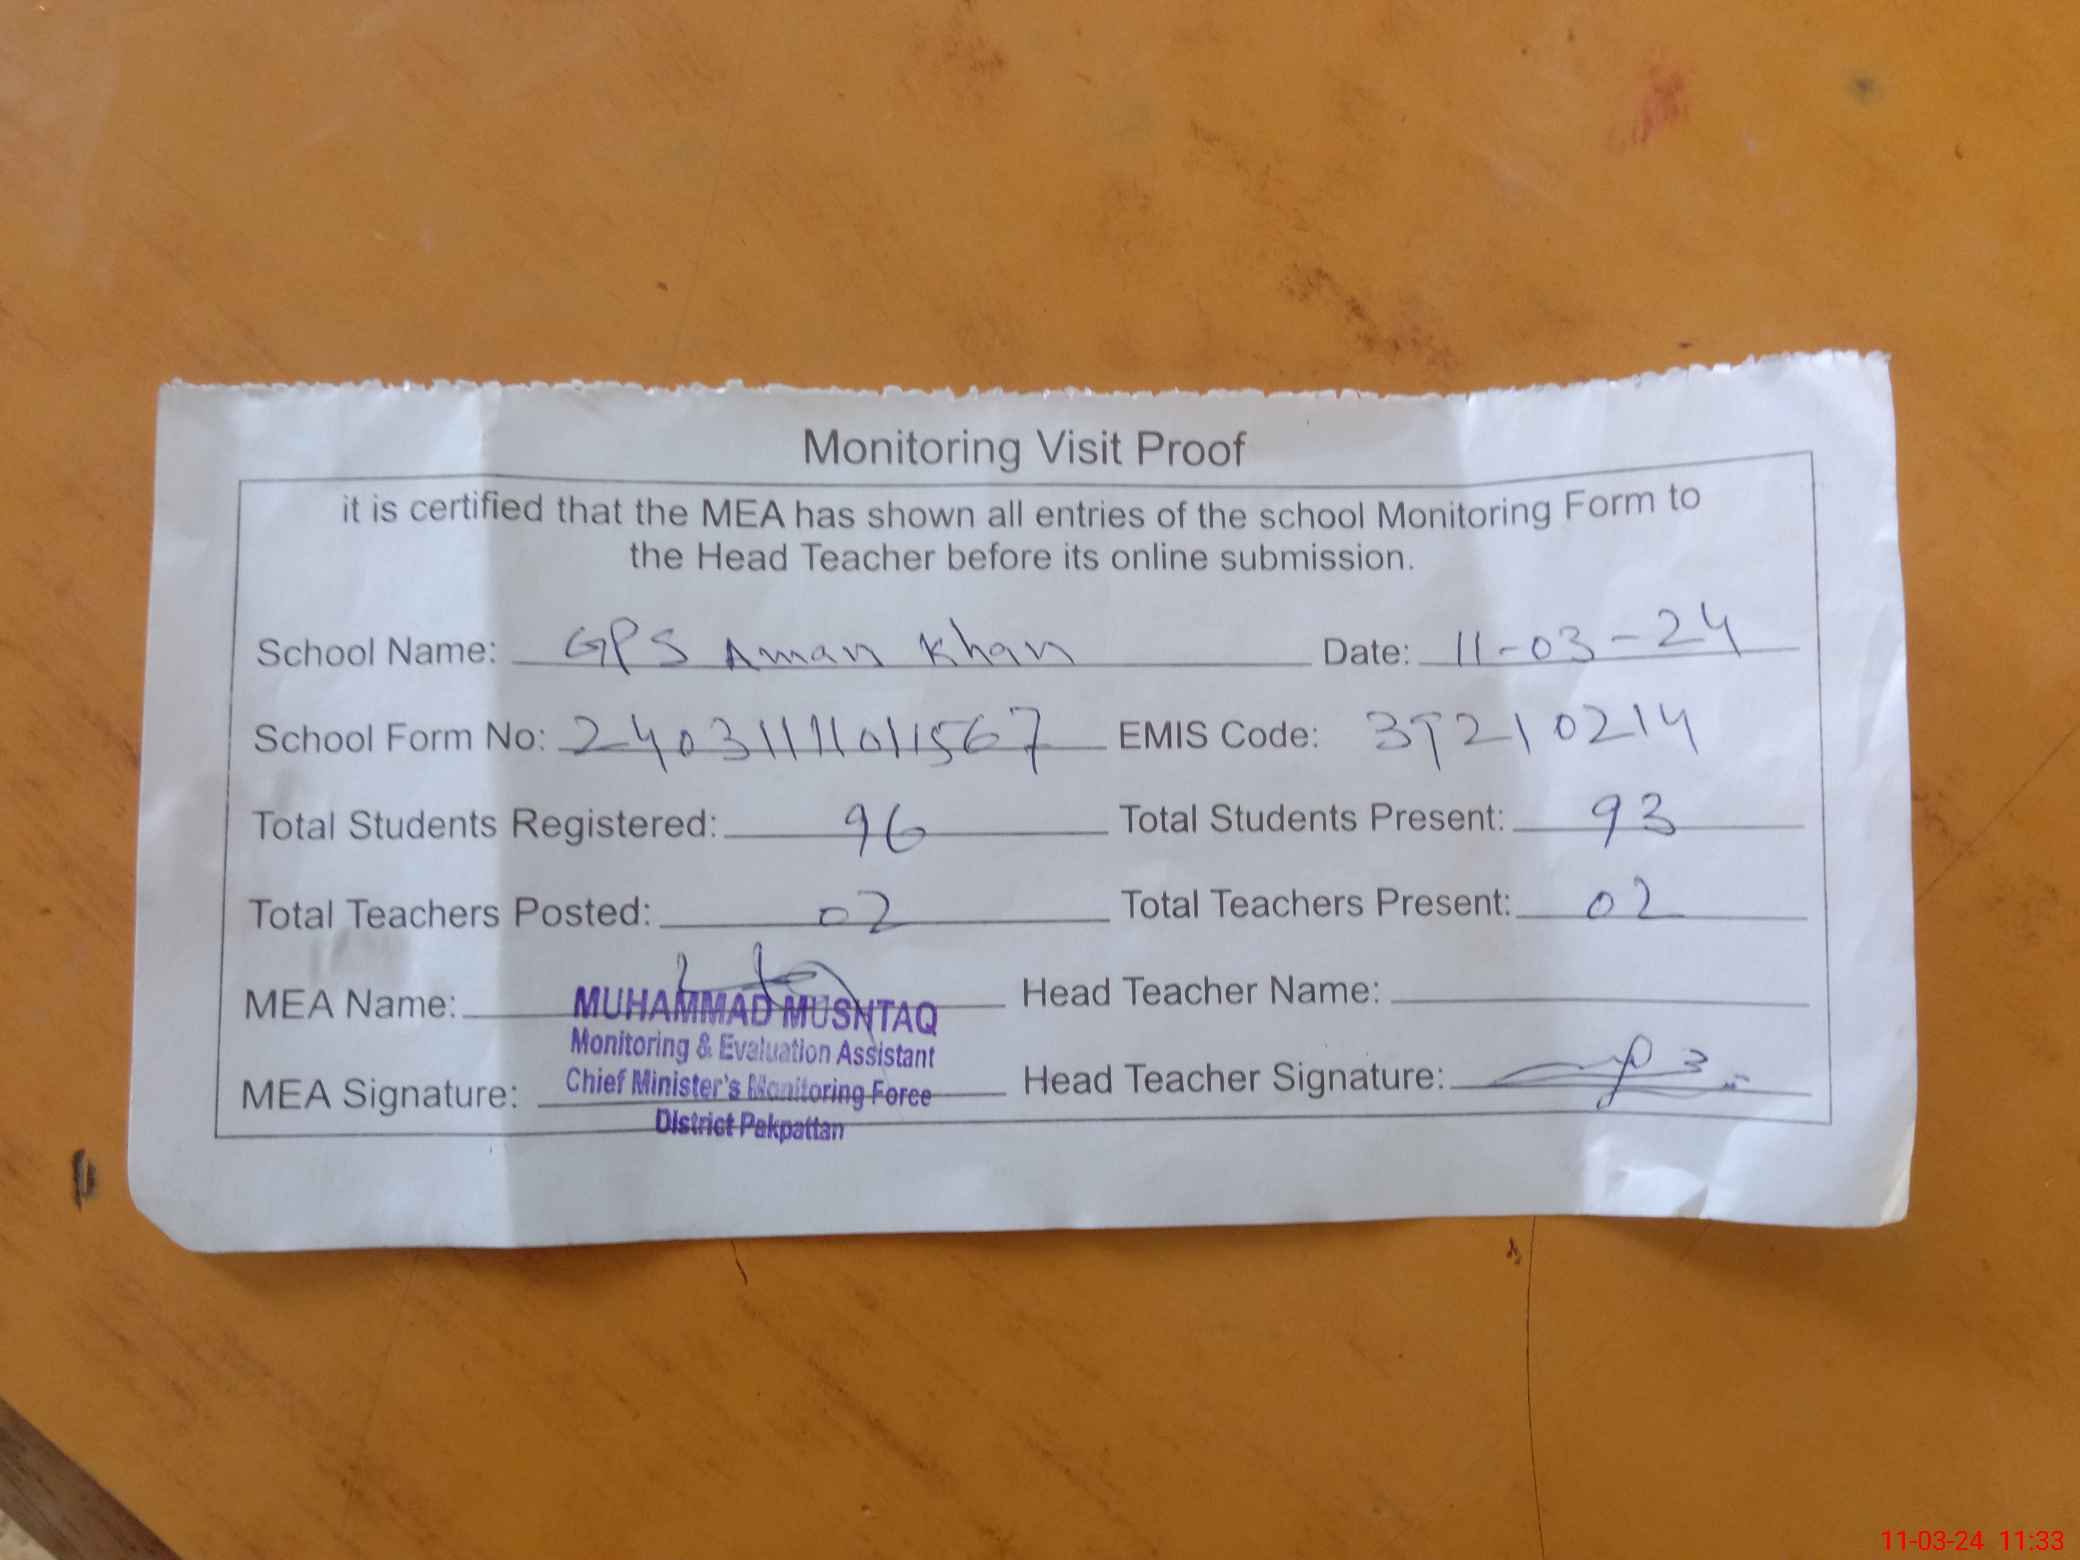 Monitoring Visit Proof
it is certified that the MEA has shown all entries of the school Monitoring Form to
the Head Teacher before its online submission.
School Name: GPS Aman Khan Date: 11-03-24
School Form No: 24031111011567 EMIS Code: 39210214
Total Students Registered: 96 Total Students Present: 93
Total Teachers Posted: 02 Total Teachers Present: 02
MEA Name: MUHAMMAD MUSHTAQ Head Teacher Name:
Monitoring & Evaluation Assistant
MEA Signature: Chief Minister's Monitoring Force Head Teacher Signature:
District Pakpattan
11-03-24 11:33